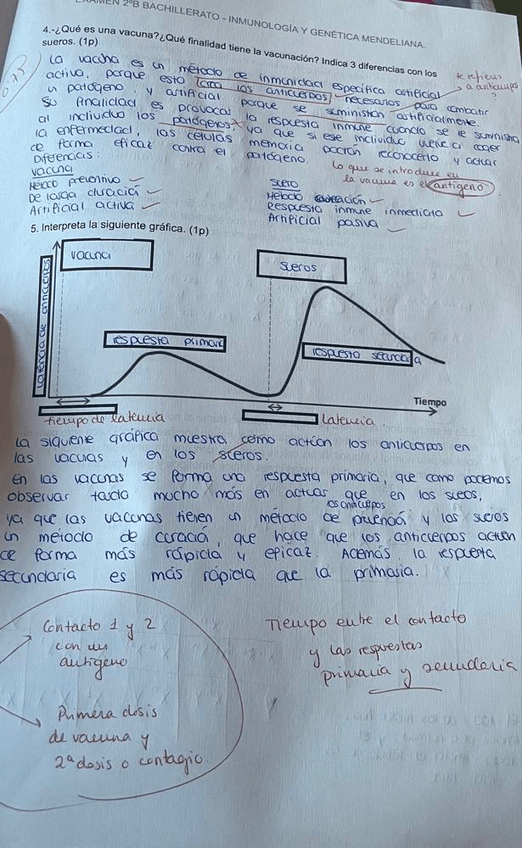 EXAMEN 2ºB BACHILLERATO - INMUNOLOGÍA Y GENÉTICA MENDELIANA.
4.-¿Qué es una vacuna?¿Qué finalidad tiene la vacunación? Indica 3 diferencias con los
sueros. (1p)
0.75
La vacuna es un método de inmunidad específica artificial
activa, porque esta crea los anticuerpos necesarios para combatir
te refieres
a anticuerpos
?
un patógeno, y artificial porque se suministran artificialmente.
Su finalidad es provocar la respuesta inmune cuando se le suministra
al individuo los patógenos, ya que si este individuo vuelve a coger
la enfermedad, las células memoria podrán reconocerlo y actuar
de forma eficaz contra el patógeno.
Lo que se introduce en
la vacuna es el antígeno
Diferencias:
vacuna
Método preventivo
De larga duración
Artificial activa
suero
Método curación
Respuesta inmune inmediata
Artificial pasiva
5. Interpreta la siguiente gráfica. (1p)
vacuna
sueros
respuesta primaria
respuesta secundaria
Tiempo
tiempo de latencia
latencia
La siguiente gráfica muestra como actúan los anticuerpos en
las vacuas y en los sueros.
En las vacunas se forma una respuesta primaria, que como podemos
observar tarda mucho más en actuar que en los sueros,
los anticuerpos
ya que las vacunas tienen un método de y los sueros
un método de curació, que hace que los anticuerpos actúen
de forma más rápida y eficaz. Además la respuesta
secundaria es más rápida que la primaria.
Contacto 1 y 2
con un
antígeno
Primera dosis
de vacuna y
2ª dosis o contagio.
Tiempo entre el contacto
y las respuestas
primaria y secundaria